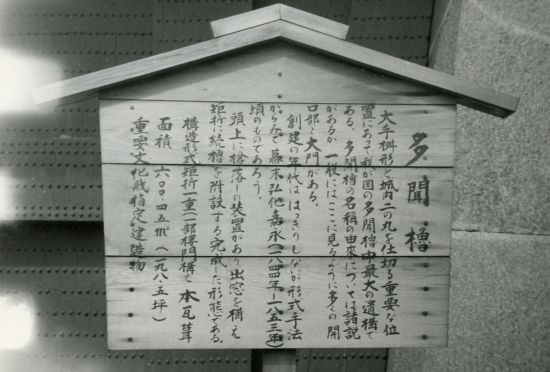 多聞櫓
大手桝形と城内二の丸を仕切る重要な位
置にあって我が国の多聞櫓中最大の遺構で
ある。多聞櫓の名称の由來については諸説
があるが一般にはここに見るように多くの開
口部と大門がある。
創建の年代ははっきりしないが形式手法
からみて幕末弘化嘉永(一八四四年ー一八五三年)
頃のものであろう。
頭上に槍落しの装置があり出窓を構え
矩折に続櫓を附設する完成した形態である。
構造形式矩折一重(一部楼門構え)本瓦葺
面積 六〇〇・四五㎡(一八五坪)
重要文化財指定建造物